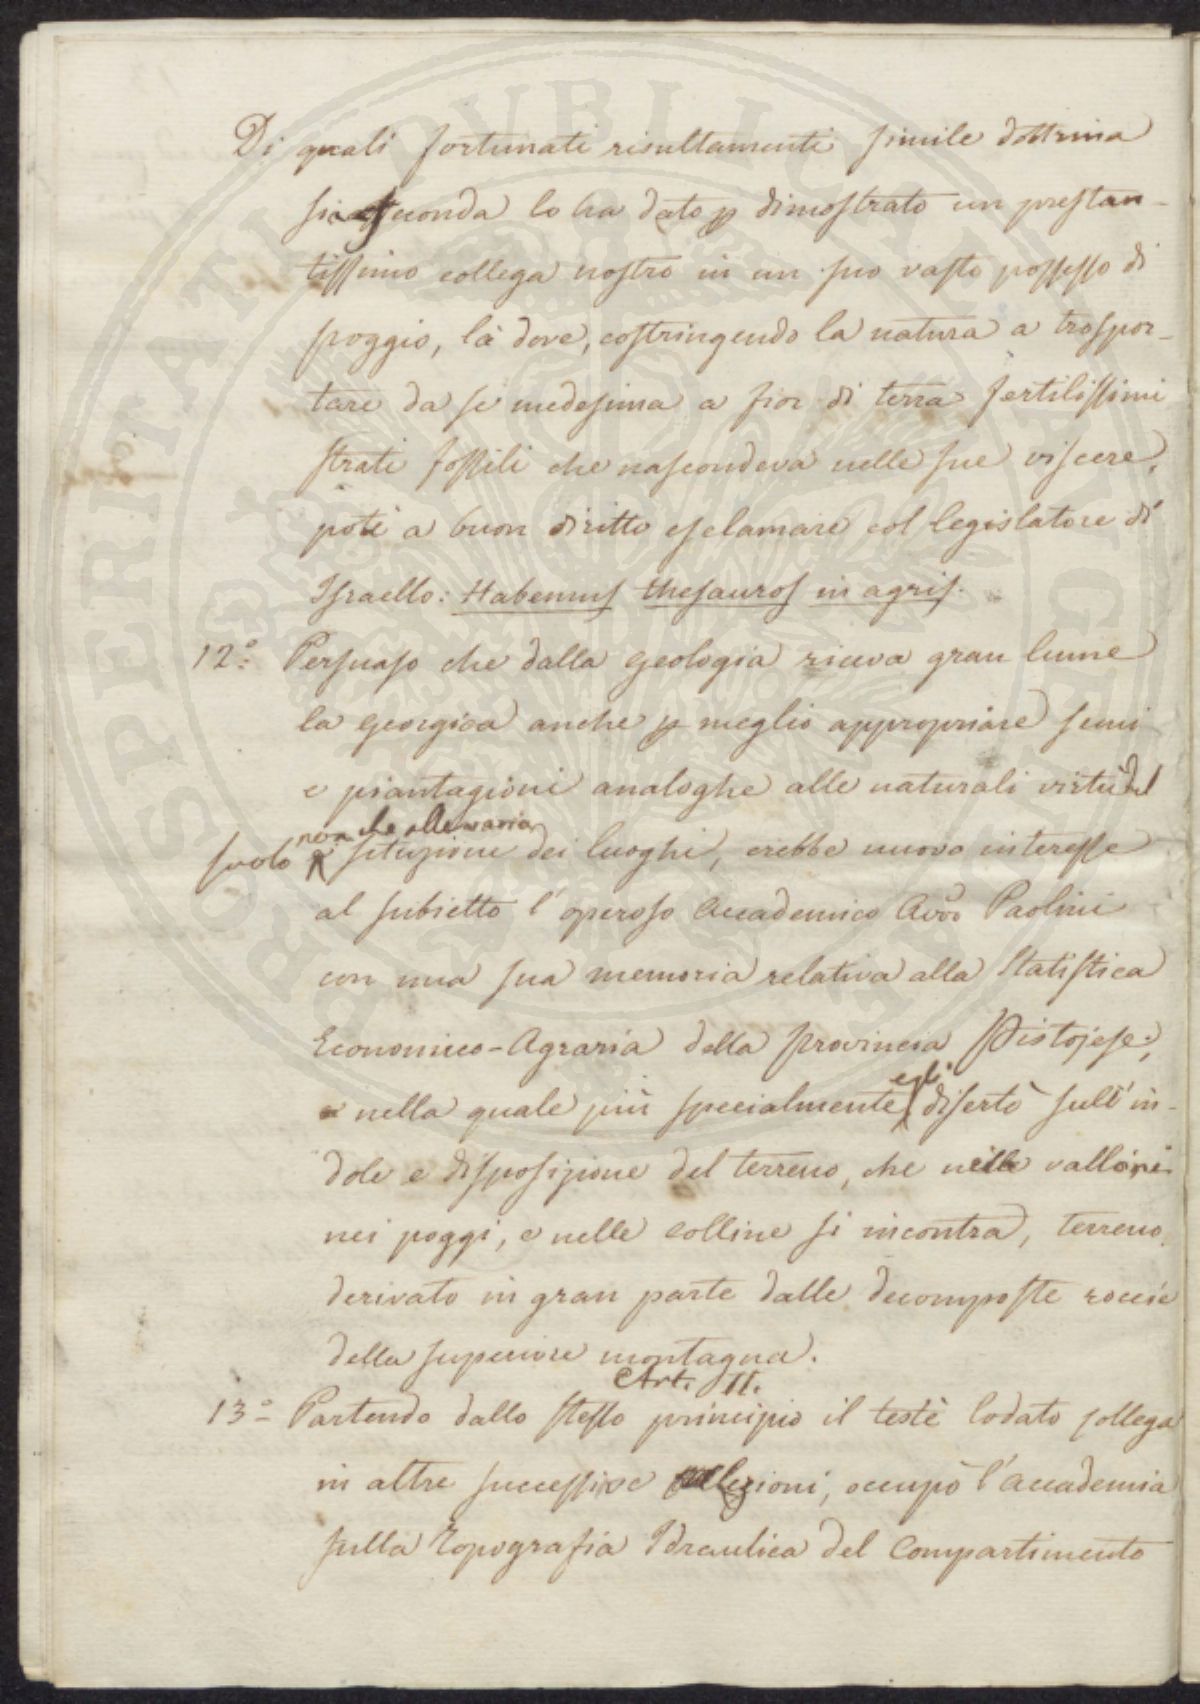 Di quali fortunati risultamenti simile dottrina
sia feconda lo ha dato p dimostrato un prestan-
tissimo collega nostro in un suo vasto possesso di
poggio, là dove, costringendo la natura a traspor-
tare da se medesima a fior di terra fertilissimi
strati fossili che nascondeva nelle sue viscere,
potè a buon diritto esclamare col legislatore di
Israello: Habemus thesauros in agris.
12.° Persuaso che dalla geologia riceva gran lume
la georgica anche p meglio appropriare semi
e piantagioni analoghe alle naturali virtù del
suolo non che alle varia situzione dei luoghi, crebbe nuovo interesse
al subietto l'operoso Accademico Avv.o Paolini
con una sua memoria relativa alla Statistica
Economico-Agraria della Provincia Pistojese;
nella quale più specialmente egli disertò sull'in-
dole e disposizione del terreno, che nelle valloni
nei poggi, e nelle colline si incontra, terreno
derivato in gran parte dalle decomposte roccie
della superiore montagna.
Art. 11.
13° Partendo dallo stesso principio il testè lodato collega
in altre successive lezioni, occupò l'Accademia
sulla Topografia Idraulica del Compartimento